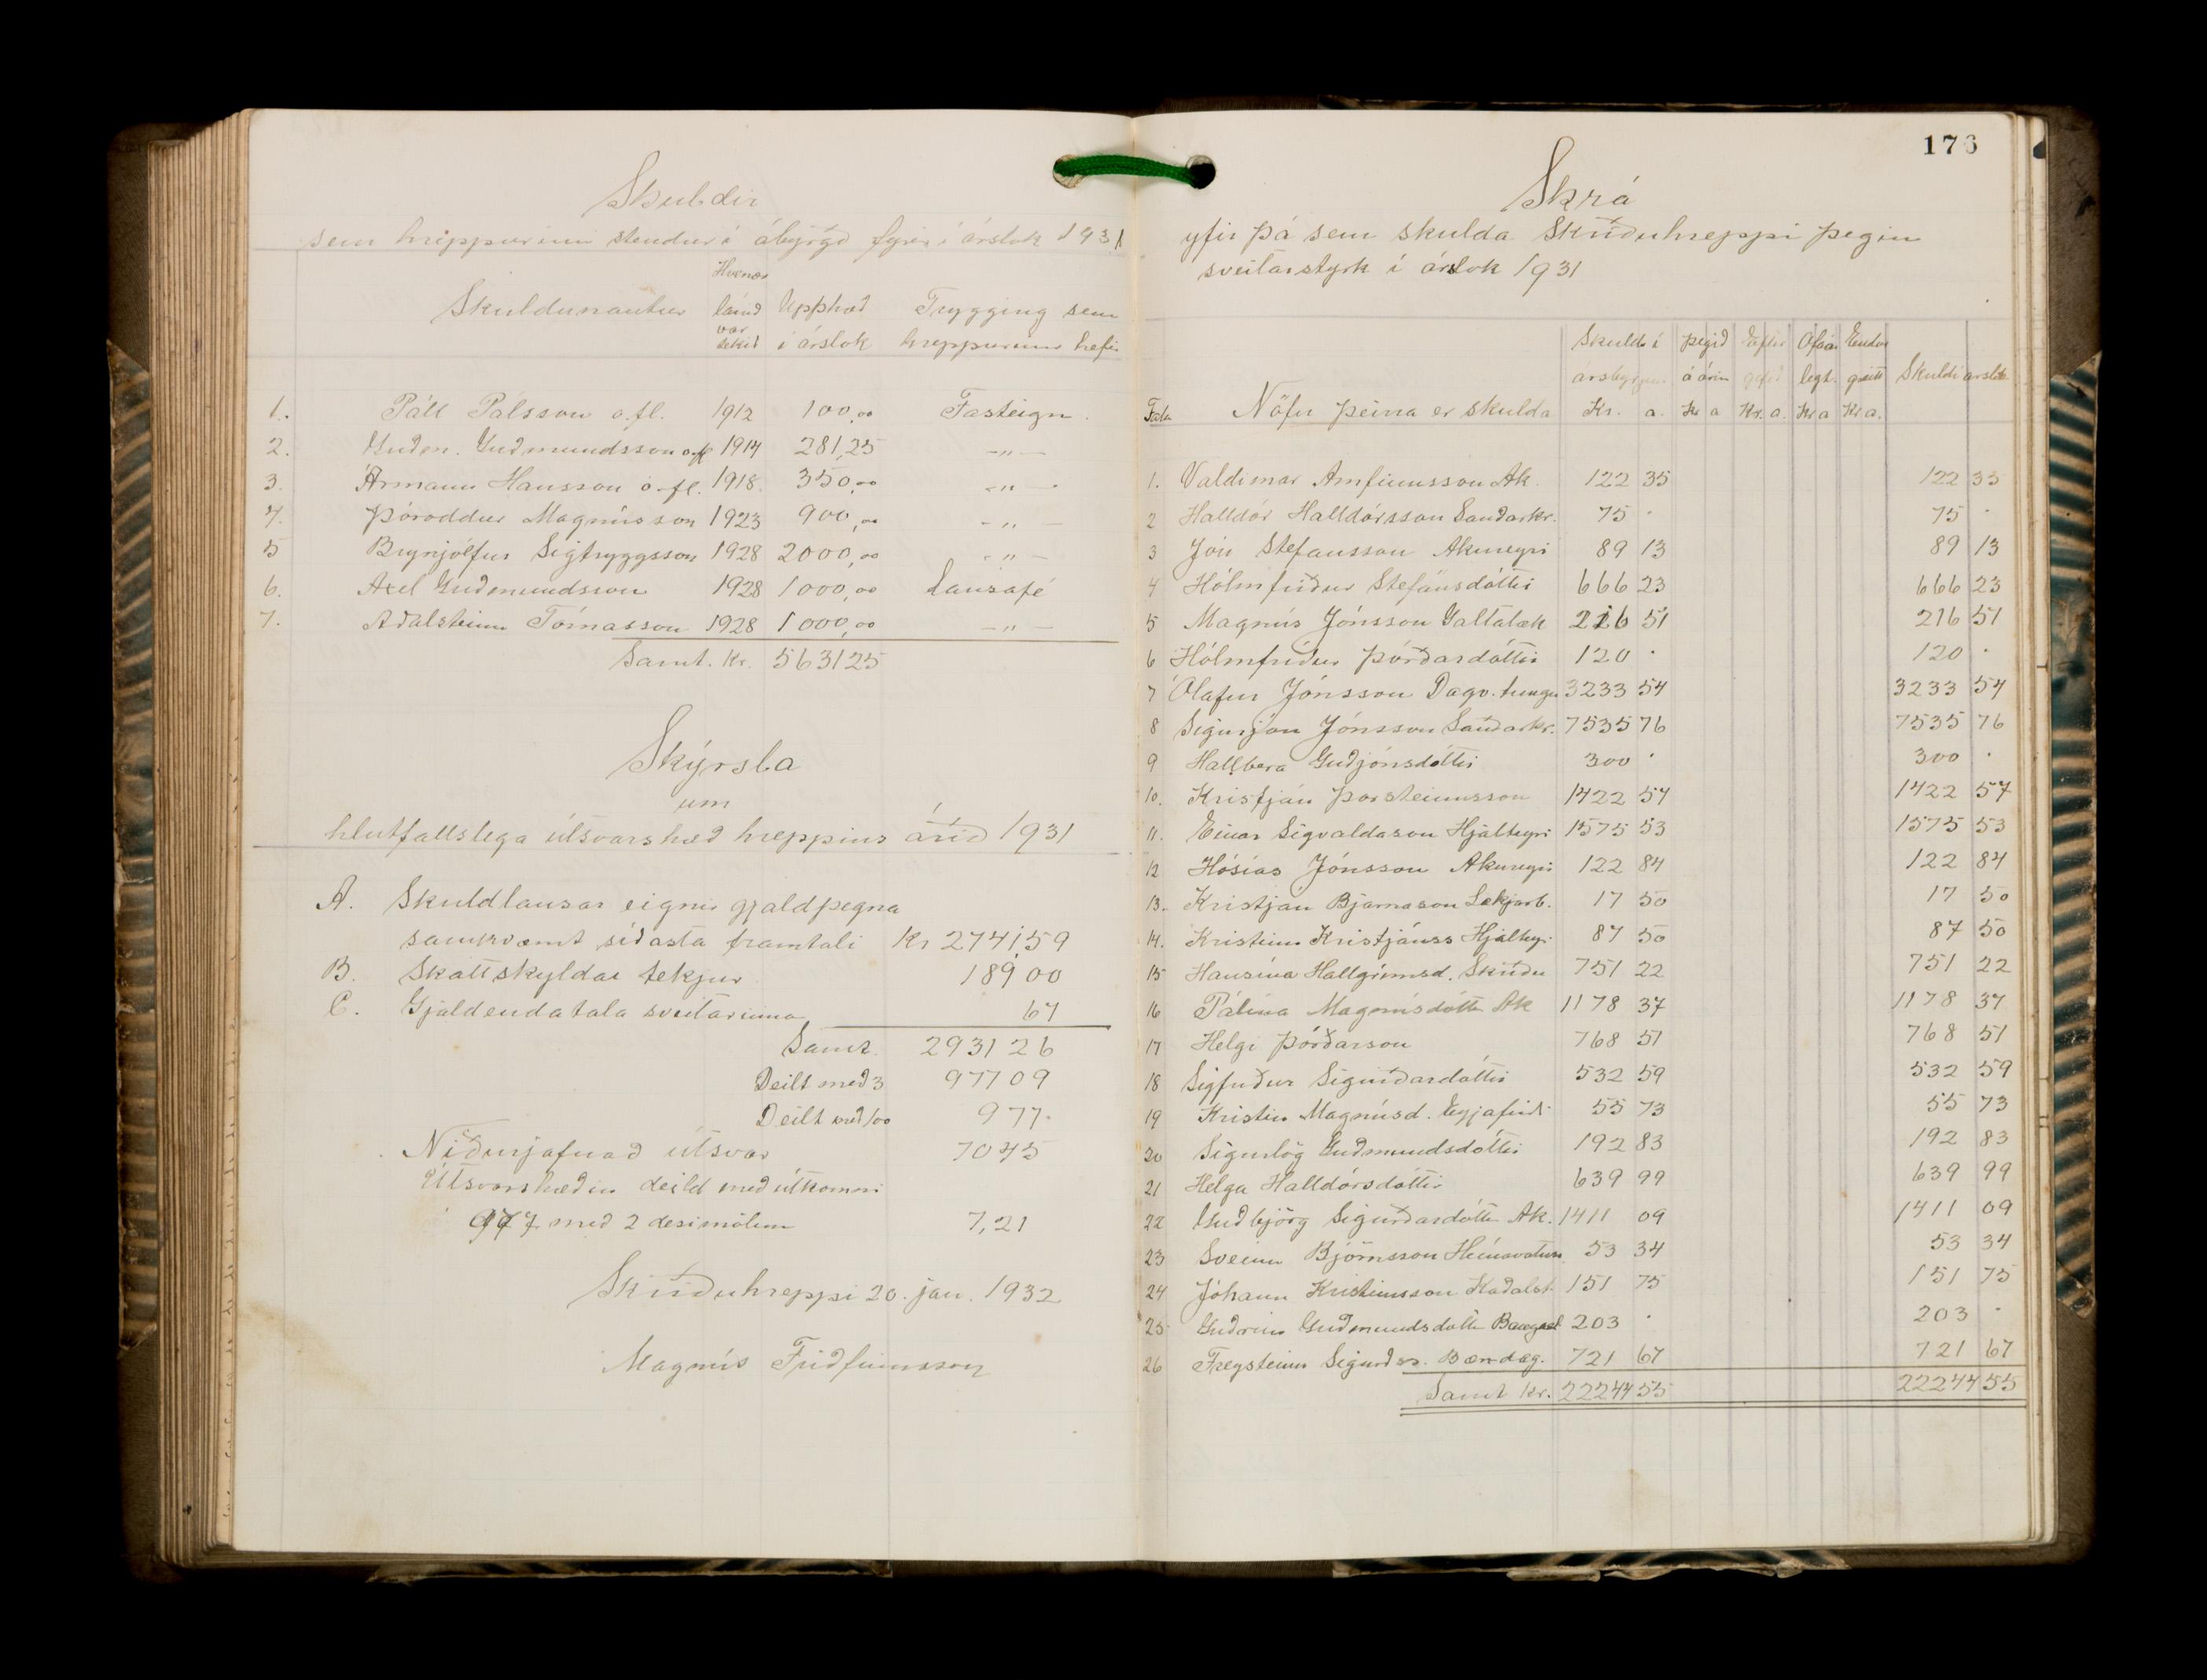 Skuldir
sem hreppurinn stendur í ábyrgð fyrir í árslok 1931
Skuldunautur Hvenær lánið var tekið Upphæð í árslok Trygging sem hreppurinn hefir
1. Páll Pálsson o.fl. 1912 100,00 Fasteign.
2. Guðm. Guðmundsson o.fl 1914 281,25 -"-
3. Ármann Hansson o.fl. 1918. 350,00 -"-
4. Þóroddur Magnússon 1923 900,00 -"-
5 Brynjólfur Sigtryggsson 1928 2000,00 -"-
6. Axel Guðmundsson 1928 1000,00 Lausafé
7. Aðalsteinn Tómasson 1928 1000,00 -"-
Samt. Kr. 563125
Skýrsla
um
hlutfallslega útsvarshæð hreppins árið 1931
A. Skuldlausar eignir gjaldþegna
samkvæmt síðasta framtali Kr 274159
B. Skattskyldar tekjur 18900
C. Gjaldendatala sveitarinna 67
Samt. 293126
Deilt með 3 97709
Deilt með 100 977.
Niðurjafnað útsvar 7045
Útsvarshæðin deild með útkomni
977 með 2 desimölum 7,21
Skriðuhreppi 20. jan. 1932
Magnús Friðfinnsson
176
Skrá
yfir þá sem skulda Skriðuhreppi þegin
sveitarstyrk í árslok 1931
Skuld í Þegið Eftir Ófáan Endur
ársbyrjun á árin gefið legt. greitt Skuld í árslok
Tala Nöfn þeirra er skulda Kr. a. Kr a Kr. a. Kr a Kr a.
1. Valdimar Arnfinnsson Ak. 122 35 122 35
2 Halldór Halldórsson Sauðarkr. 75 · 75 ·
3 Jón Stefansson Akureyri 89 13 89 13
4 Hólmfríður Stefánsdóttir 666 23 666 23
5 Magnús Jónsson Galtalæk 216 51 216 51
6 Hólmfríður Þórðardóttir 120 · 120 ·
7 Ólafur Jónsson Dagv.tungu 3233 54 3233 54
8 Sigurjón Jónsson Sauðarkr. 7535 76 7535 76
9 Hallbera Guðjónsdóttir 300 · 300 ·
10. Kristján Þorsteinnsson 1422 57 1422 57
11. Einar Sigvaldason Hjalteyri 1575 53 1575 53
12 Hósías Jónsson Akureyri 122 84 122 84
13. Kristján Bjarnason Lækjarb. 17 50 17 50
14. Kristinn Kristjánss Hjalteyri 87 50 87 50
15 Hansína Hallgrímsd. Skriðu 751 22 751 22
16 Pálína Magnúsdótti Ak 1178 37 1178 37
17 Helgi Þórðarson 768 51 768 51
18 Sigfríður Sigurðardóttir 532 59 532 59
19 Kristin Magnúsd. Eyjafirði 55 73 55 73
20 Sigurlög Guðmundsdóttir 192 83 192 83
21 Helga Halldórsdóttir 639 99 639 99
22 Guðbjörg Sigurðardótti Ak. 1411 09 1411 09
23 Sveinn Björnsson 53 34 53 34
24 Jóhann Kristinnsson Kaðalst. 151 75 151 75
25 Guðrún Guðmundsdótti 203 · 203 ·
26 Freysteinn Sigurðss. Bændag. 721 67 721 67
Samt Kr. 22244 55 22244 55